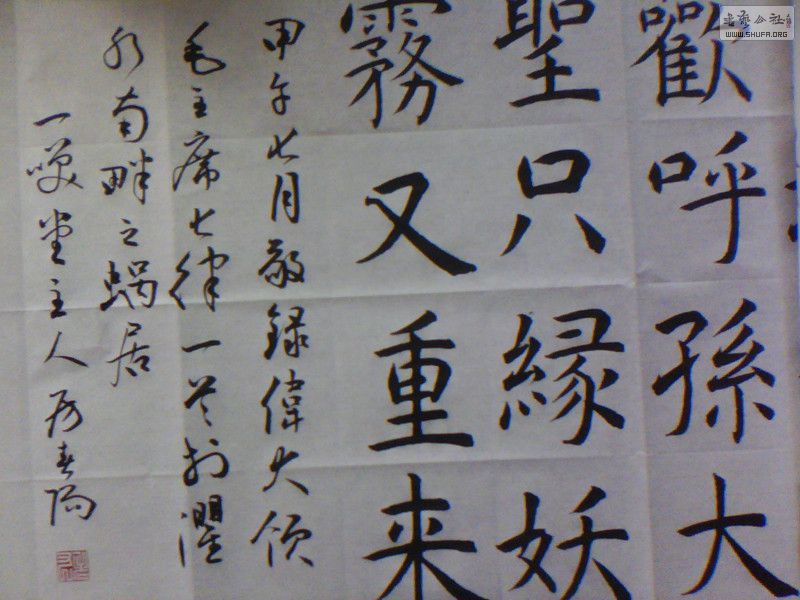 歡呼孫大
聖只緣妖
霧又重来
甲午七月敬録偉大領
毛主席七律一首於濯
水南畔之蝸居
一嘆堂主人
書藝公社
WWW.SHUFA.ORG